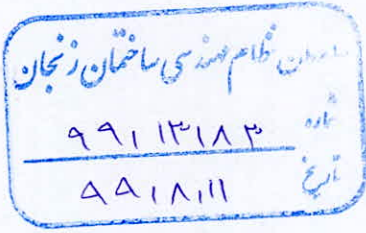 سازمان نظام مهندسی ساختمان زنجان
شماره ۹۹/۱۳۱۸۳
تاریخ ۹۹/۸/۱۱